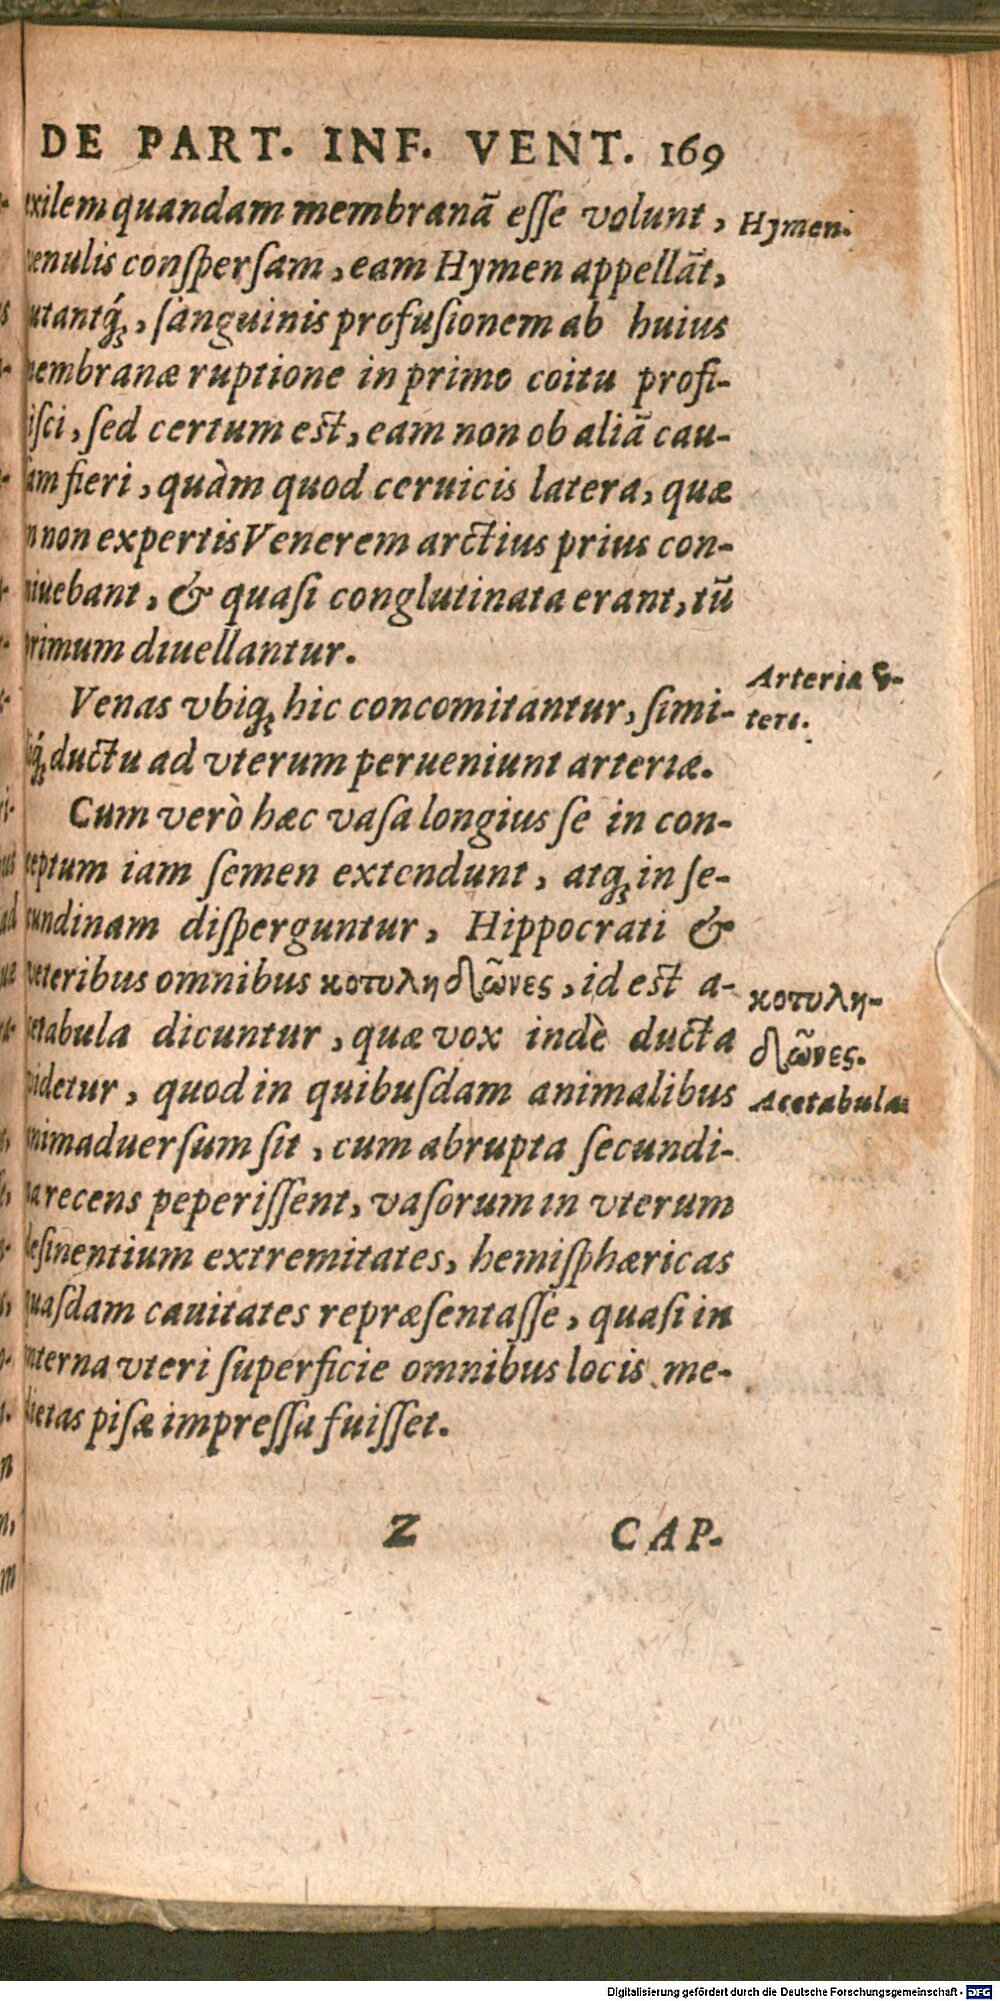 DE PART. INF. VENT. 169
exilem quandam membranā eſſe volunt,
Hymen.
venulis conſperſam, eam Hymen appellāt,
utantq́;, ſanguinis profuſionem ab huius
membranæ ruptione in primo coitu profi-
iſci, ſed certum eſt, eam non ob aliā cau-
ſam fieri, quàm quod ceruicis latera, quæ
in non expertis Venerem arctius prius con-
niuebant, & quaſi conglutinata erant, tū
primum diuellantur.
Venas vbiq; hic concomitantur, ſimi-
Arteria v-
teri.
liq́; ductu ad vterum perueniunt arteriæ.
Cum verò hæc vaſa longius ſe in con-
ceptum iam ſemen extendunt, atq; in ſe-
cundinam diſperguntur, Hippocrati &
veteribus omnibus κοτυληδῶνες, id eſt a-
κοτυλη-
δῶνες.
cetabula dicuntur, quæ vox indè ducta
Acetabula
videtur, quod in quibuſdam animalibus
animaduerſum ſit, cum abrupta ſecundi-
na recens peperiſſent, vaſorum in vterum
deſinentium extremitates, hemiſphæricas
quaſdam cauitates repræſentaſſe, quaſi in
interna vteri ſuperficie omnibus locis me-
dietas piſæ impreſſa fuiſſet.
Z
CAP.
Digitalisierung gefördert durch die Deutsche Forschungsgemeinschaft - DFG